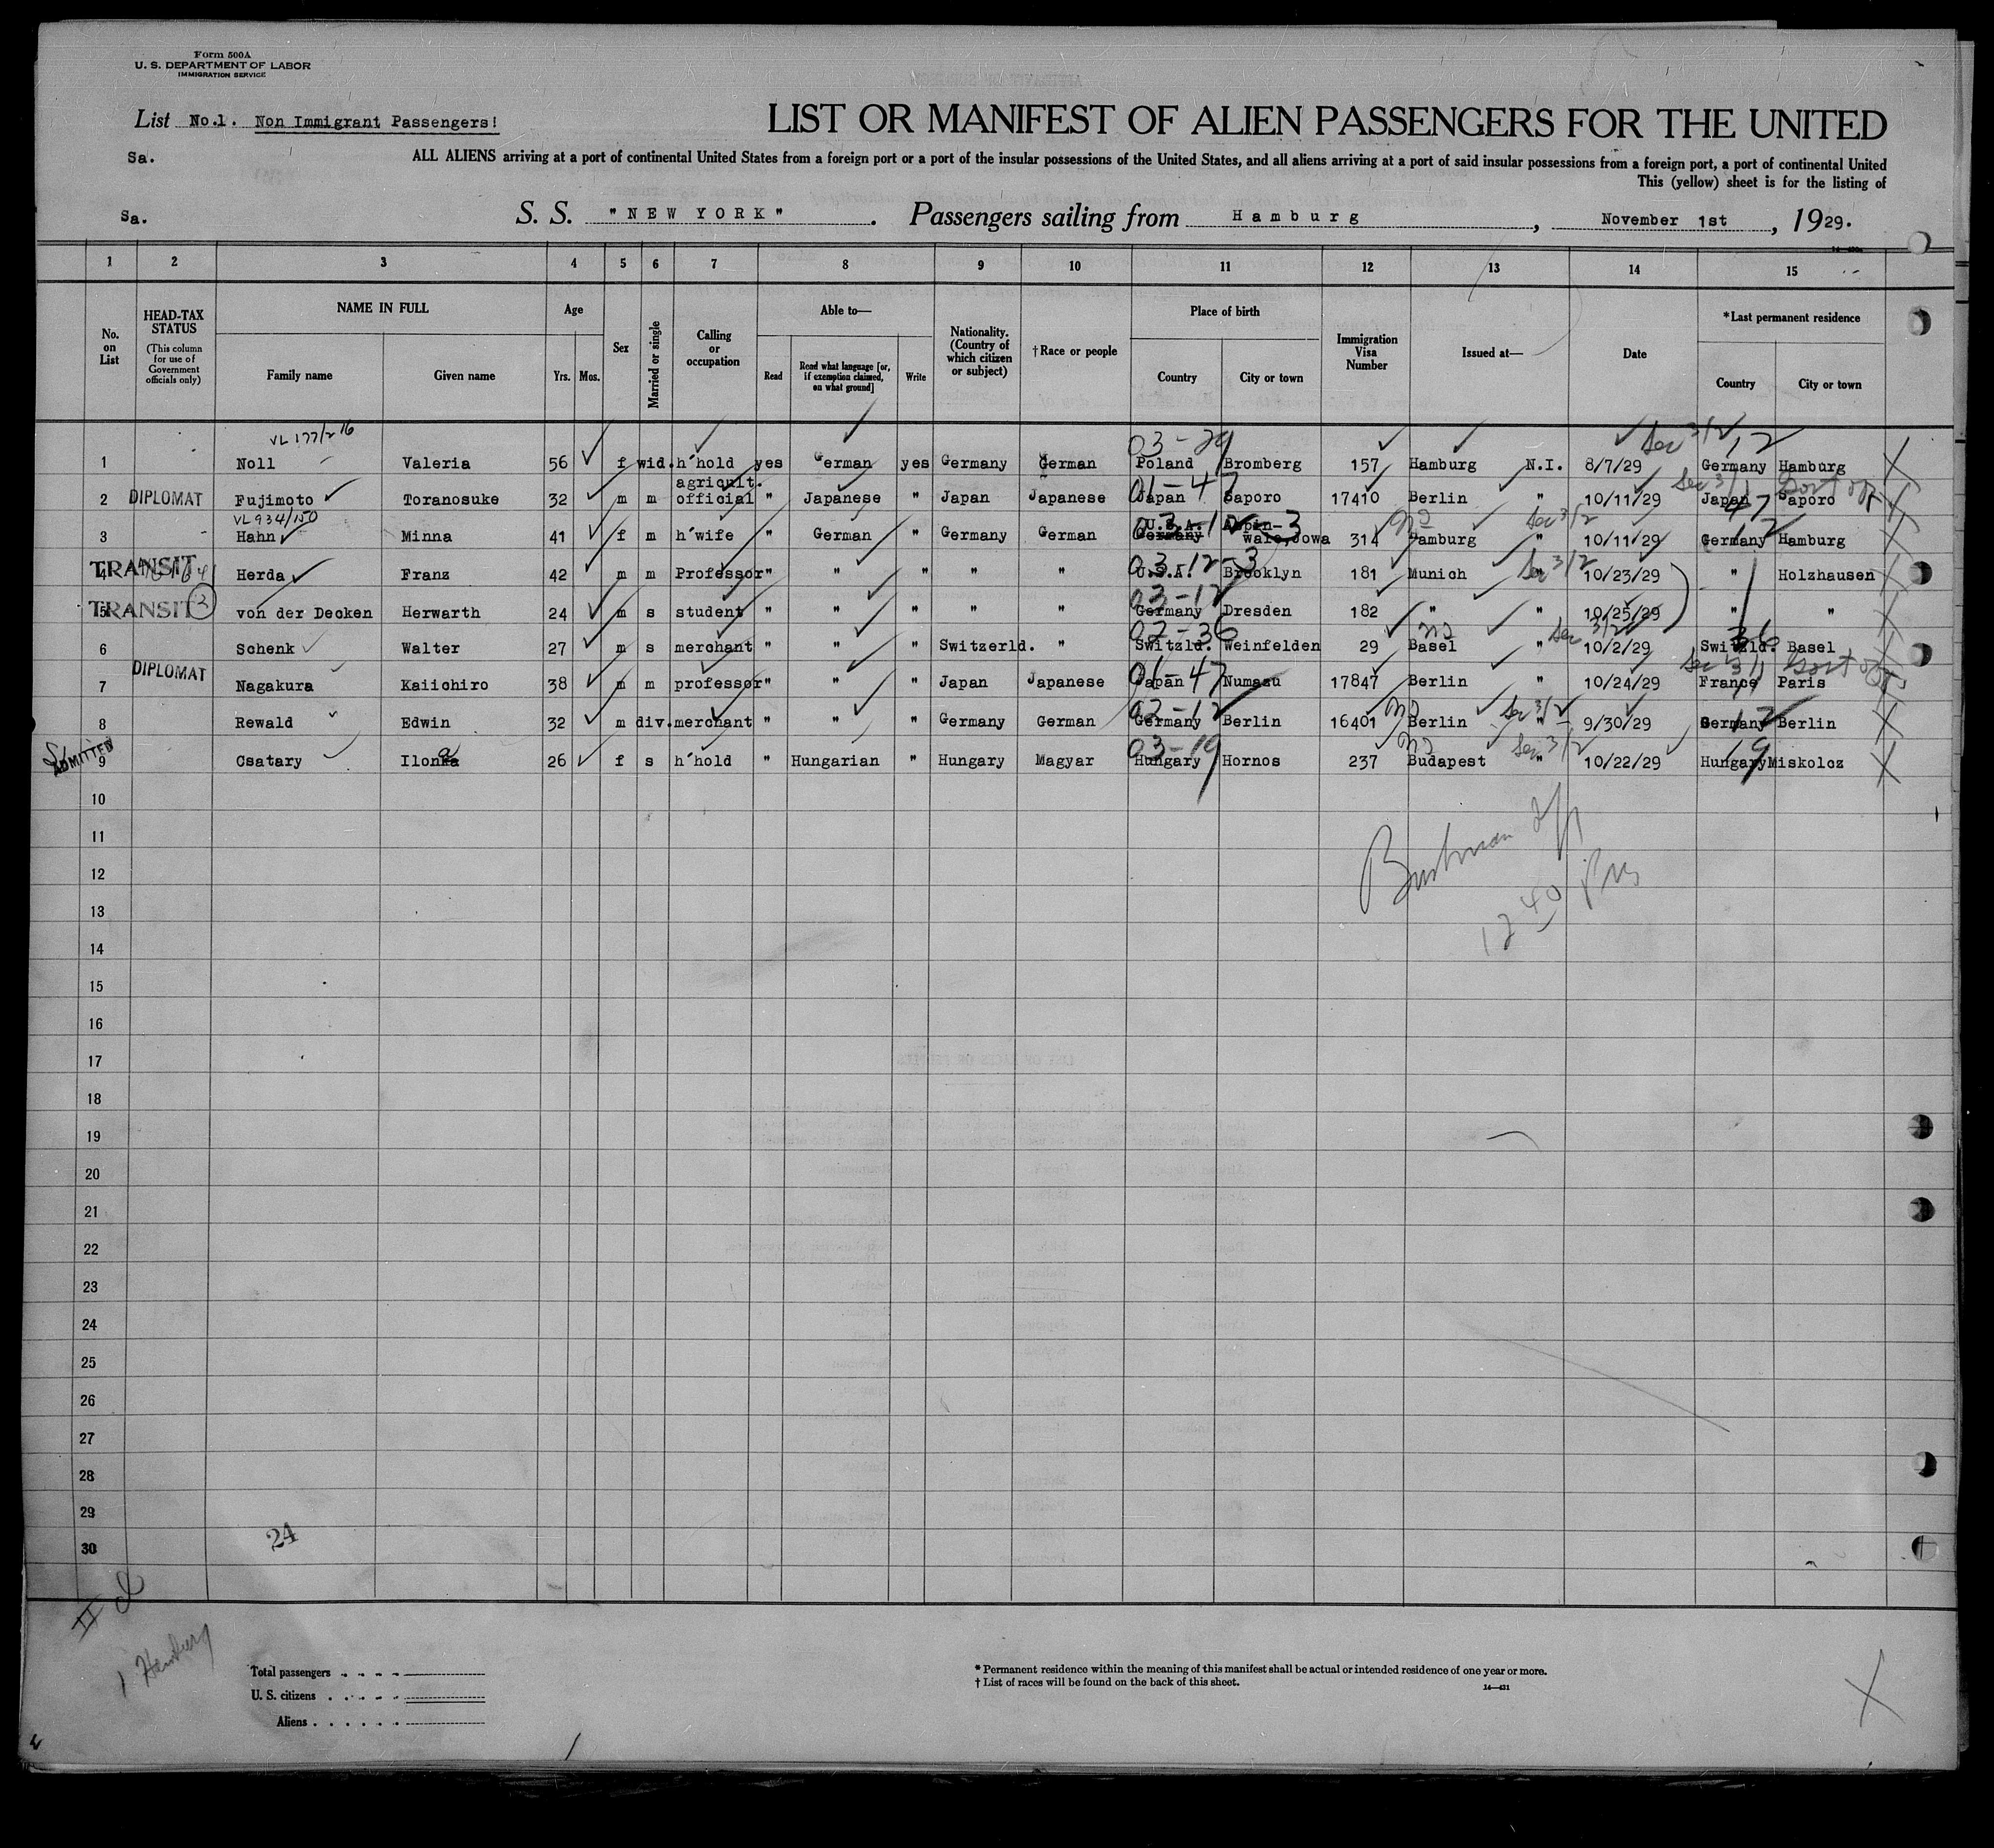 Form 500A
U. S. DEPARTMENT OF LABOR
IMMIGRATION SERVICE
List No.1. Non Immigrant Passengers!
LIST OR MANIFEST OF ALIEN PASSENGERS FOR THE UNITED
Sa.
ALL ALIENS arriving at a port of continental United States from a foreign port or a port of the insular possessions of the United States, and all aliens arriving at a port of said insular possessions from a foreign port, a port of continental United
This (yellow) sheet is for the listing of
Sa. S. S. "NEW YORK". Passengers sailing from Hamburg, November 1st, 1929.
1 2 3 4 5 6 7 8 9 10 11 12 13 14 15
No. on List
HEAD-TAX STATUS (This column for use of Government officials only)
NAME IN FULL
Family name Given name
Age
Yrs. Mos.
Sex
Married or single
Calling or occupation
Able to—
Read Read what language [or, if exemption claimed, on what ground] Write
Nationality. (Country of which citizen or subject)
†Race or people
Place of birth
Country City or town
Immigration Visa Number
Issued at—
Date
*Last permanent residence
Country City or town
VL 177/216 03-29 Sec 3/2 12
1 Noll Valeria 56 f wid. h'hold yes German yes Germany German Poland Bromberg 157 Hamburg N.I. 8/7/29 Germany Hamburg
01-47 Sec 3/1 47
2 DIPLOMAT Fujimoto Toranosuke 32 m m agricult. official " Japanese " Japan Japanese Japan Saporo 17410 Berlin " 10/11/29 Japan Saporo
VL 934/150 03-12-3 Sec 3/2 12
3 Hahn Minna 41 f m h'wife " German " Germany German U.S.A. Germany Aspin- wale, Jowa 314 Hamburg " 10/11/29 Germany Hamburg
TRANSIT 03-12-3 Sec 3/2
4 Herda Franz 42 m m Professor " " " " " U.S.A. Brooklyn 181 Munich " 10/23/29 " Holzhausen
TRANSIT 3 03-12
5 von der Decken Herwarth 24 m s student " " " " " Germany Dresden 182 " " 10/25/29 " "
02-36 Sec 3/2 36
6 Schenk Walter 27 m s merchant " " " Switzerld. " Switzld. Weinfelden 29 Basel " 10/2/29 Switzld. Basel
DIPLOMAT 01-47 Sec 3/1
7 Nagakura Kaiichiro 38 m m professor " " " Japan Japanese Japan Numazu 17847 Berlin " 10/24/29 France Paris
02-12 Sec 3/2 12
8 Rewald Edwin 32 m div. merchant " " " Germany German Germany Berlin 16401 Berlin " 9/30/29 Germany Berlin
ADMITTED 03-19 Sec 3/2 19
9 Csatary Ilonka 26 f s h'hold " Hungarian " Hungary Magyar Hungary Hornos 237 Budapest " 10/22/29 Hungary Miskolcz
10
11
12
13
12 40 Pm
14
15
16
17
18
19
20
21
22
23
24
25
26
27
28
29
24
30
1 Hamburg
Total passengers
U. S. citizens
Aliens
* Permanent residence within the meaning of this manifest shall be actual or intended residence of one year or more.
† List of races will be found on the back of this sheet.
14—421